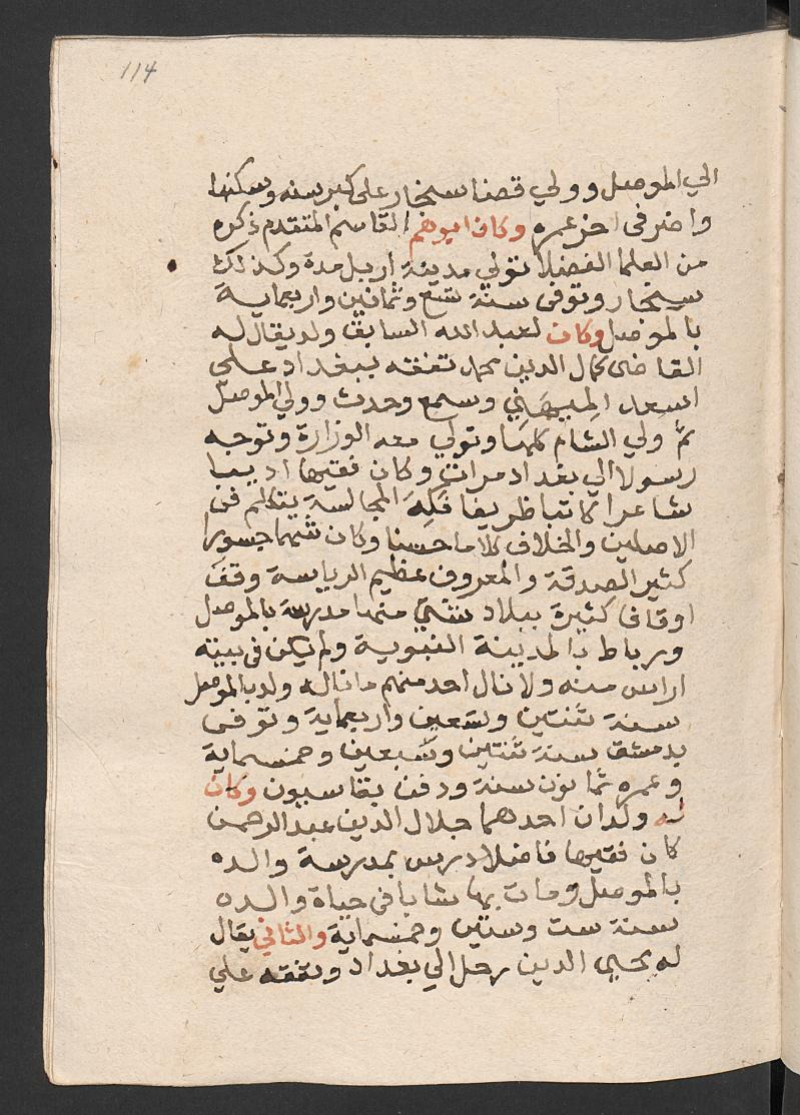 114
الي الموصل وولي قضا سنجار على كبر سنه وسكنها
واضر في اخر عمره وكان ابوهم القاسم المتقدم ذكره
من العلما الفضلا تولي مدينة اربل مدة وكذلك
سنجار وتوفى سنة تسع وثمانين واربعماية
بالموصل وكان لعبد الله السابق ولد يقال له
القاضى كمال الدين محمد تفقه ببغداد على
اسعد الميهني وسمع وحدث وولي الموصل
ثم ولي الشام كلها وتولي معه الوزارة وتوجه
رسولا الي بغداد مرات وكان فقيها اديبا
شاعرا كاتبا ظريفا فكه المجالسة يتكلم فى
الاصلين والخلاف كلاما حسنا وكان شهما جسورا
كثير الصدقة والمعروف عظيم الرياسة وقف
اوقافا كثيرة ببلاد شتي منها مدرسة بالموصل
ورباط بالمدينة النبوية ولم يكن فى بيته
اراس منه ولا نال احد منهم ما ناله ولد بالموصل
سنة ثنتين وتسعين واربعماية وتوفى
بدمشق سنة ثنتين وسبعين وخمسماية
وعمره ثمانون سنة ودفن بقاسيون وكان
له ولدان احدهما جلال الدين عبد الرحمن
كان فقيها فاضلا درس بمدرسة والده
بالموصل ومات بها شابا فى حياة والده
سنة ست وستين وخمسماية والثاني يقال
له محيى الدين رحل الي بغداد وتفقه علي